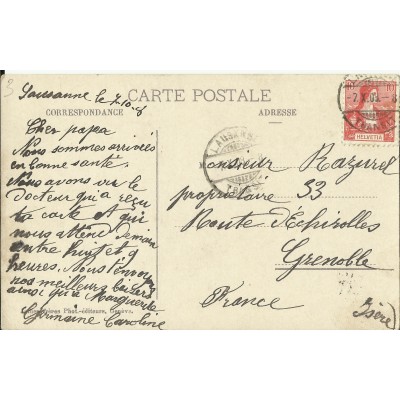 Lausanne le 7.10
CARTE POSTALE
CORRESPONDANCE
ADRESSE
Cher papa
Nous sommes arrivés
en bonne santé.
Nous avons vu le
docteur qui a reçu
ta carte et qui
nous attend demain
entre huit et 9
heures. Nous t'envoyons
nos meilleurs baisers
ainsi qu'a Marguerite
Germaine Caroline
Phot.-éditeurs, Genève.
LAUSANNE
HELVETIA
Monsieur Razurel
propriétaire 33
Route d'Echirolles
Grenoble
France
(Isère)